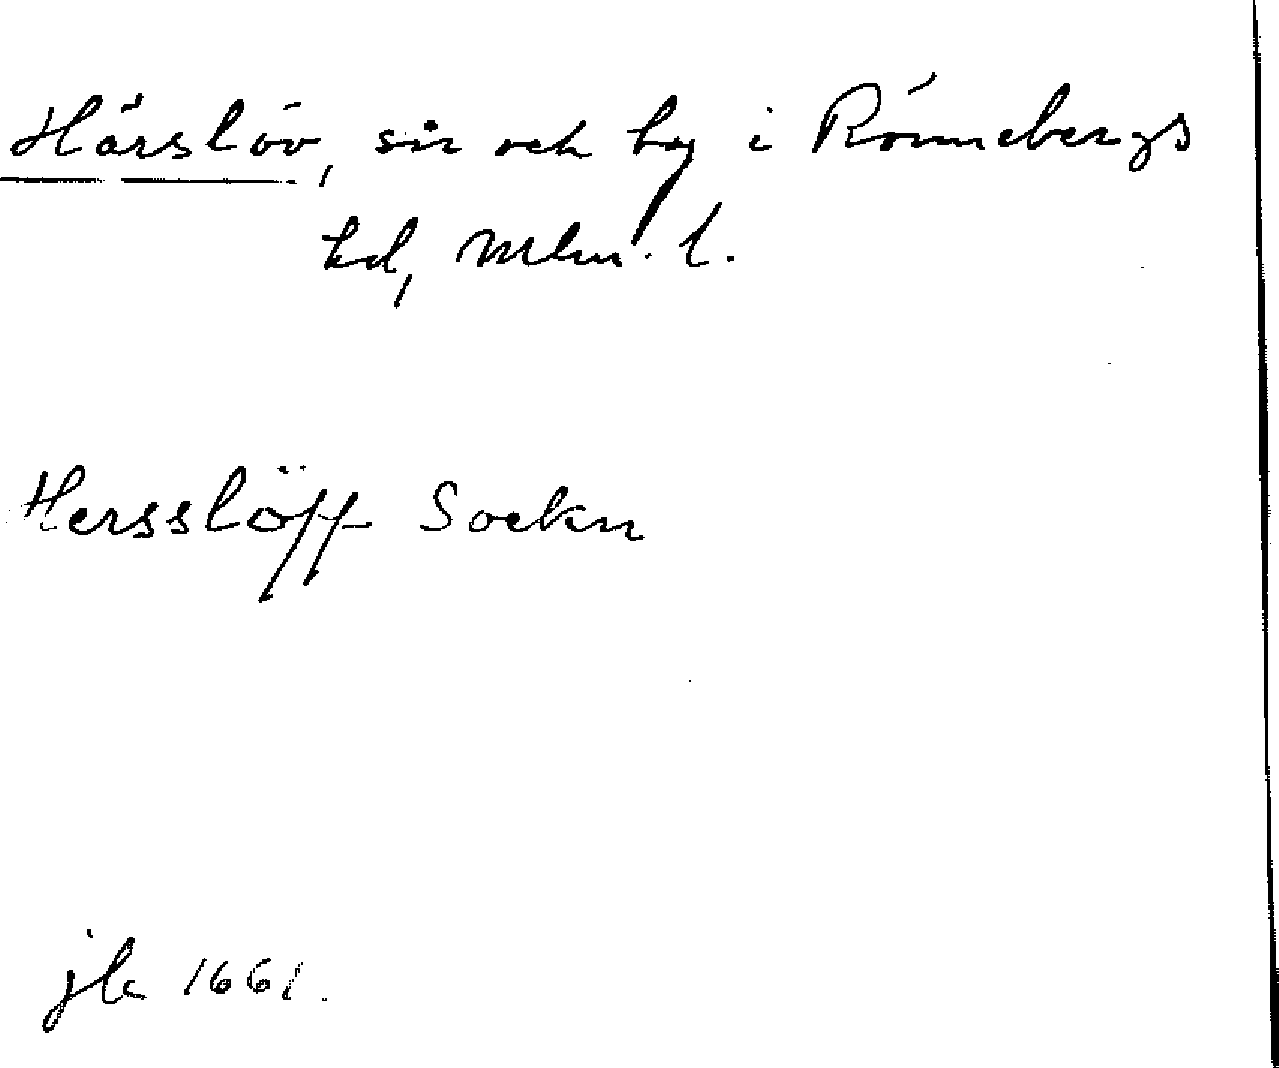 Härslöv, sn och by i Rönnebergs
hd, Mlm. l.
Hersslöff Sockn
jb 1661.